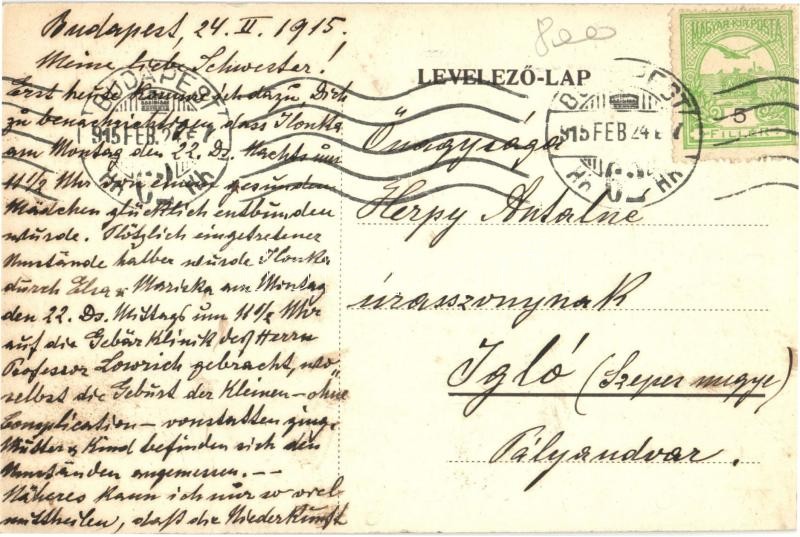 Budapest, 24. II. 1915.
Meine liebe Schwester!
Erst heute komme ich dazu, Dich
zu benachrichtigen, dass Ilonka
am Montag den 22. Ds. Nachts um
11 1/2 Uhr von einem gesunden
Mädchen glücklich entbunden
wurde. Plötzlich eingetretener
Umstände halber wurde Ilonka
durch Elsa u. Maricka am Montag
den 22. Ds. Mittags um 11 1/2 Uhr
auf die Gebärklinik des Herrn
Professor Lowrich gebracht, wo-
selbst die Geburt der Kleinen – ohne
Complication – vonstatten ging.
Mutter u. Kind befinden sich den
Umständen angemessen. –
Näheres kann ich nur so viel
mittheilen, daß die Niederkunft
LEVELEZŐ-LAP
Önagysága
Herpy Antalne
úrasszonynak
Igló (Szepes megye)
Pályaudvar.
BUDAPEST
915 FEB. 24 E 7
62
BUDAPEST
915 FEB 24 E 7
62
MAGYAR KIR. POSTA
5
FILLÉR